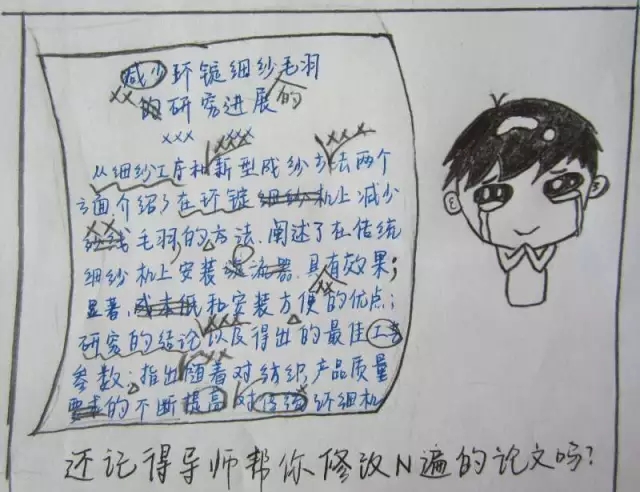 减少环锭细纱毛羽
×× 的研究进展的
××× ××××
×××
从细纱工序和新型成纱方法两个
方面介绍了在环锭细纱机上减少
××
纱线毛羽的方法、阐述了在传统
细纱机上安装 具有效果；
××
显著、成本低和安装方便的优点；
×××
研究的结论以及得出的最佳工艺
××
参数；指出随着对纺织产品质量
要求的不断提高对传统环细机
还记得导师帮你修改N遍的论文吗？